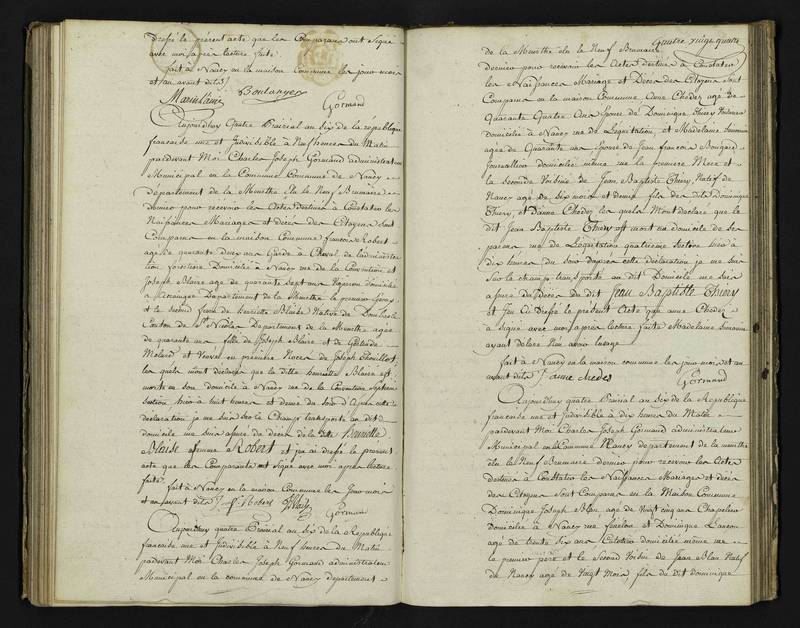 dressé le présent acte que les Comparans ont signé
avec moi après lecture faite.
fait à Nancy en la maison Commune les jour mois
et an avant dits
Boulanger
Gormand
Aujourdhuy quatre Prairial an six de la république
française une et Indivisible à Neuf heures du Matin
pardevant Moi Charles Joseph Gormand administrateur
Municipal en la Commune Commune de Nancy
département de la Meurthe élu le Neuf Brumaire
dernier pour recevoir les Actes destinés à Constater les
Naissances Mariages et décès des Citoyens Sont
Comparus en la maison Commune françois Robert
agé de quarante deux ans Garde à Cheval de l'administration
forestière Domicilié à Nancy rue de la Convention et
Joseph Blaise age de quarante Sept ans Vigneron domicilié
a Département de la Meurthe le premier Epoux
et le second frere de henriette Blaise Native de
Canton de St Nicolas Departement de la Meurthe agée
de quarante ans fille de Joseph Blaise et de
et Veuve en première Noces de Joseph
les quels m'ont déclaré que la ditte henriette Blaise est
morte en son domicile à Nancy rue de la Convention Septieme
Section hier à huit heures et demie du Soir d'après cette
déclaration je me suis sur le Champ transporté au dit
domicile me suis assuré du décès de la ditte Henriette
Blaise femme Robert et j'ai dressé le present
acte que les Comparants ont signé avec moi après lecture
faite.
fait à Nancy en la maison Commune les Jour mois
et an avant dits F. Robert J Blaise
Gormand
Aujourdhuy quatre Prairial an six de la République
francaise une et Indivisible à Neuf heures du Matin
pardevant Moi Charles Joseph Gormand administrateur
Municipal en la commune de Nancy département
Quatre vingt quatre
de la Meurthe élu le Neuf Brumaire
dernier pour recevoir les Actes destinés à Constater
les Naissances Mariage et Décès des Citoyens Sont
Comparus en la maison Commune Anne Chedez agé de
Quarante Quatre Ans Epouse de Dominique Thiery
domiciliée à Nancy rue de L'equitation, et Madelaine
agée de Quarante ans Epouse de Jean françois
Journallier domiciliée même rue la premiere Mere et
la seconde Voisine de Jean Baptiste Thiery, Natif de
Nancy agé de six mois et demi fils des dits Dominique
Thiery, et D'anne Chedez les quels M'ont declaré que le
dit Jean Baptiste Thiery est mort au domicile de ses
parens rue de L'équitation quatrieme Section hier à
dix heures du soir d'apres cette déclaration je me suis
sur le champ transporté au dit Domicile me suis
assuré du Décès du dit Jean Baptiste Thiery
et J'en ai dressé le présent Acte qu'anne Chedez
a Signé avec moi après lecture faite Madelaine
ayant déclaré N'en avoir l'usage
fait à Nancy en la maison commune les jour mois et an
avant dits anne chedes
Gormand
Aujourdhuy quatre Prairial an six de la République
francaise une et Indivisible à dix heures du Matin
pardevant Moi Charles Joseph Gormand administrateur
Municipal en la Commune Nancy département de la meurthe
élu le Neuf Brumaire dernier pour recevoir les Actes
destinés à Constater les Naissances Mariages et décès
des Citoyens Sont Comparus en la Maison Commune
Dominique Joseph Blan agé de Vingt cinq ans Chapelier
Domicilié à Nancy rue fénelon et Dominique
agé de trente six ans domicilié même rue
le premier père et le Second Voisin de Jean Blan Natif
de Nancy agé de Vingt Mois, fils du dit dominique